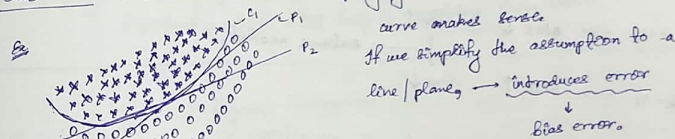 Ex.
C1
P1
P2
curve makes sense.
If we simplify the assumption to a
line/plane, → introduces error
↓
bias error.